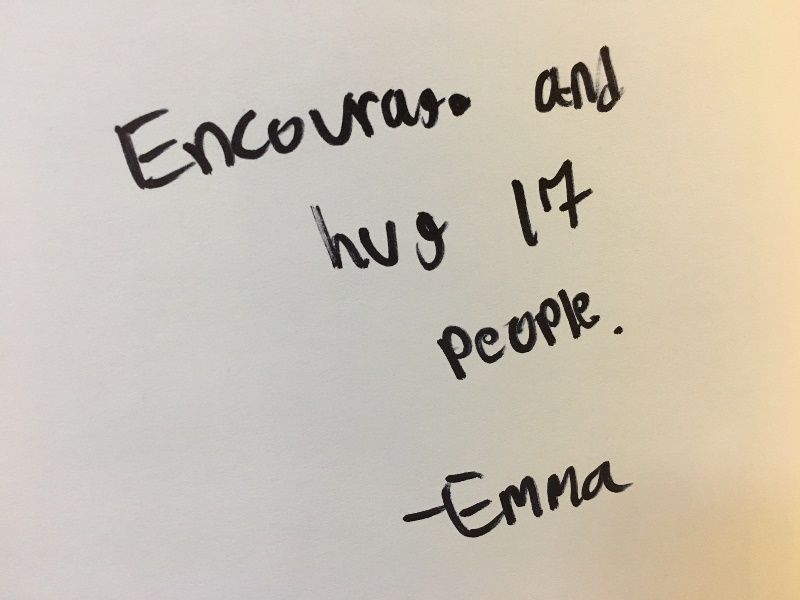 Encourage and
hug 17
people.
-Emma